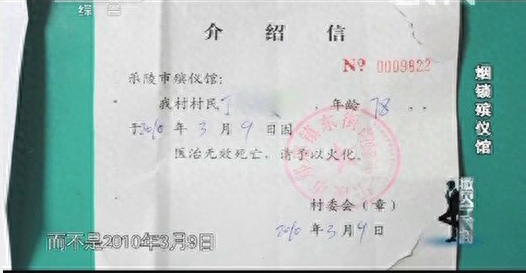 综合
介绍信
№ 0009822
乐陵市殡仪馆:
我村村民丁 年龄78
于2010年3月9日因
医治无效死亡,请予以火化。
村委会(章)
2010年3月9日
烟锁殡仪馆
而不是2010年3月9日